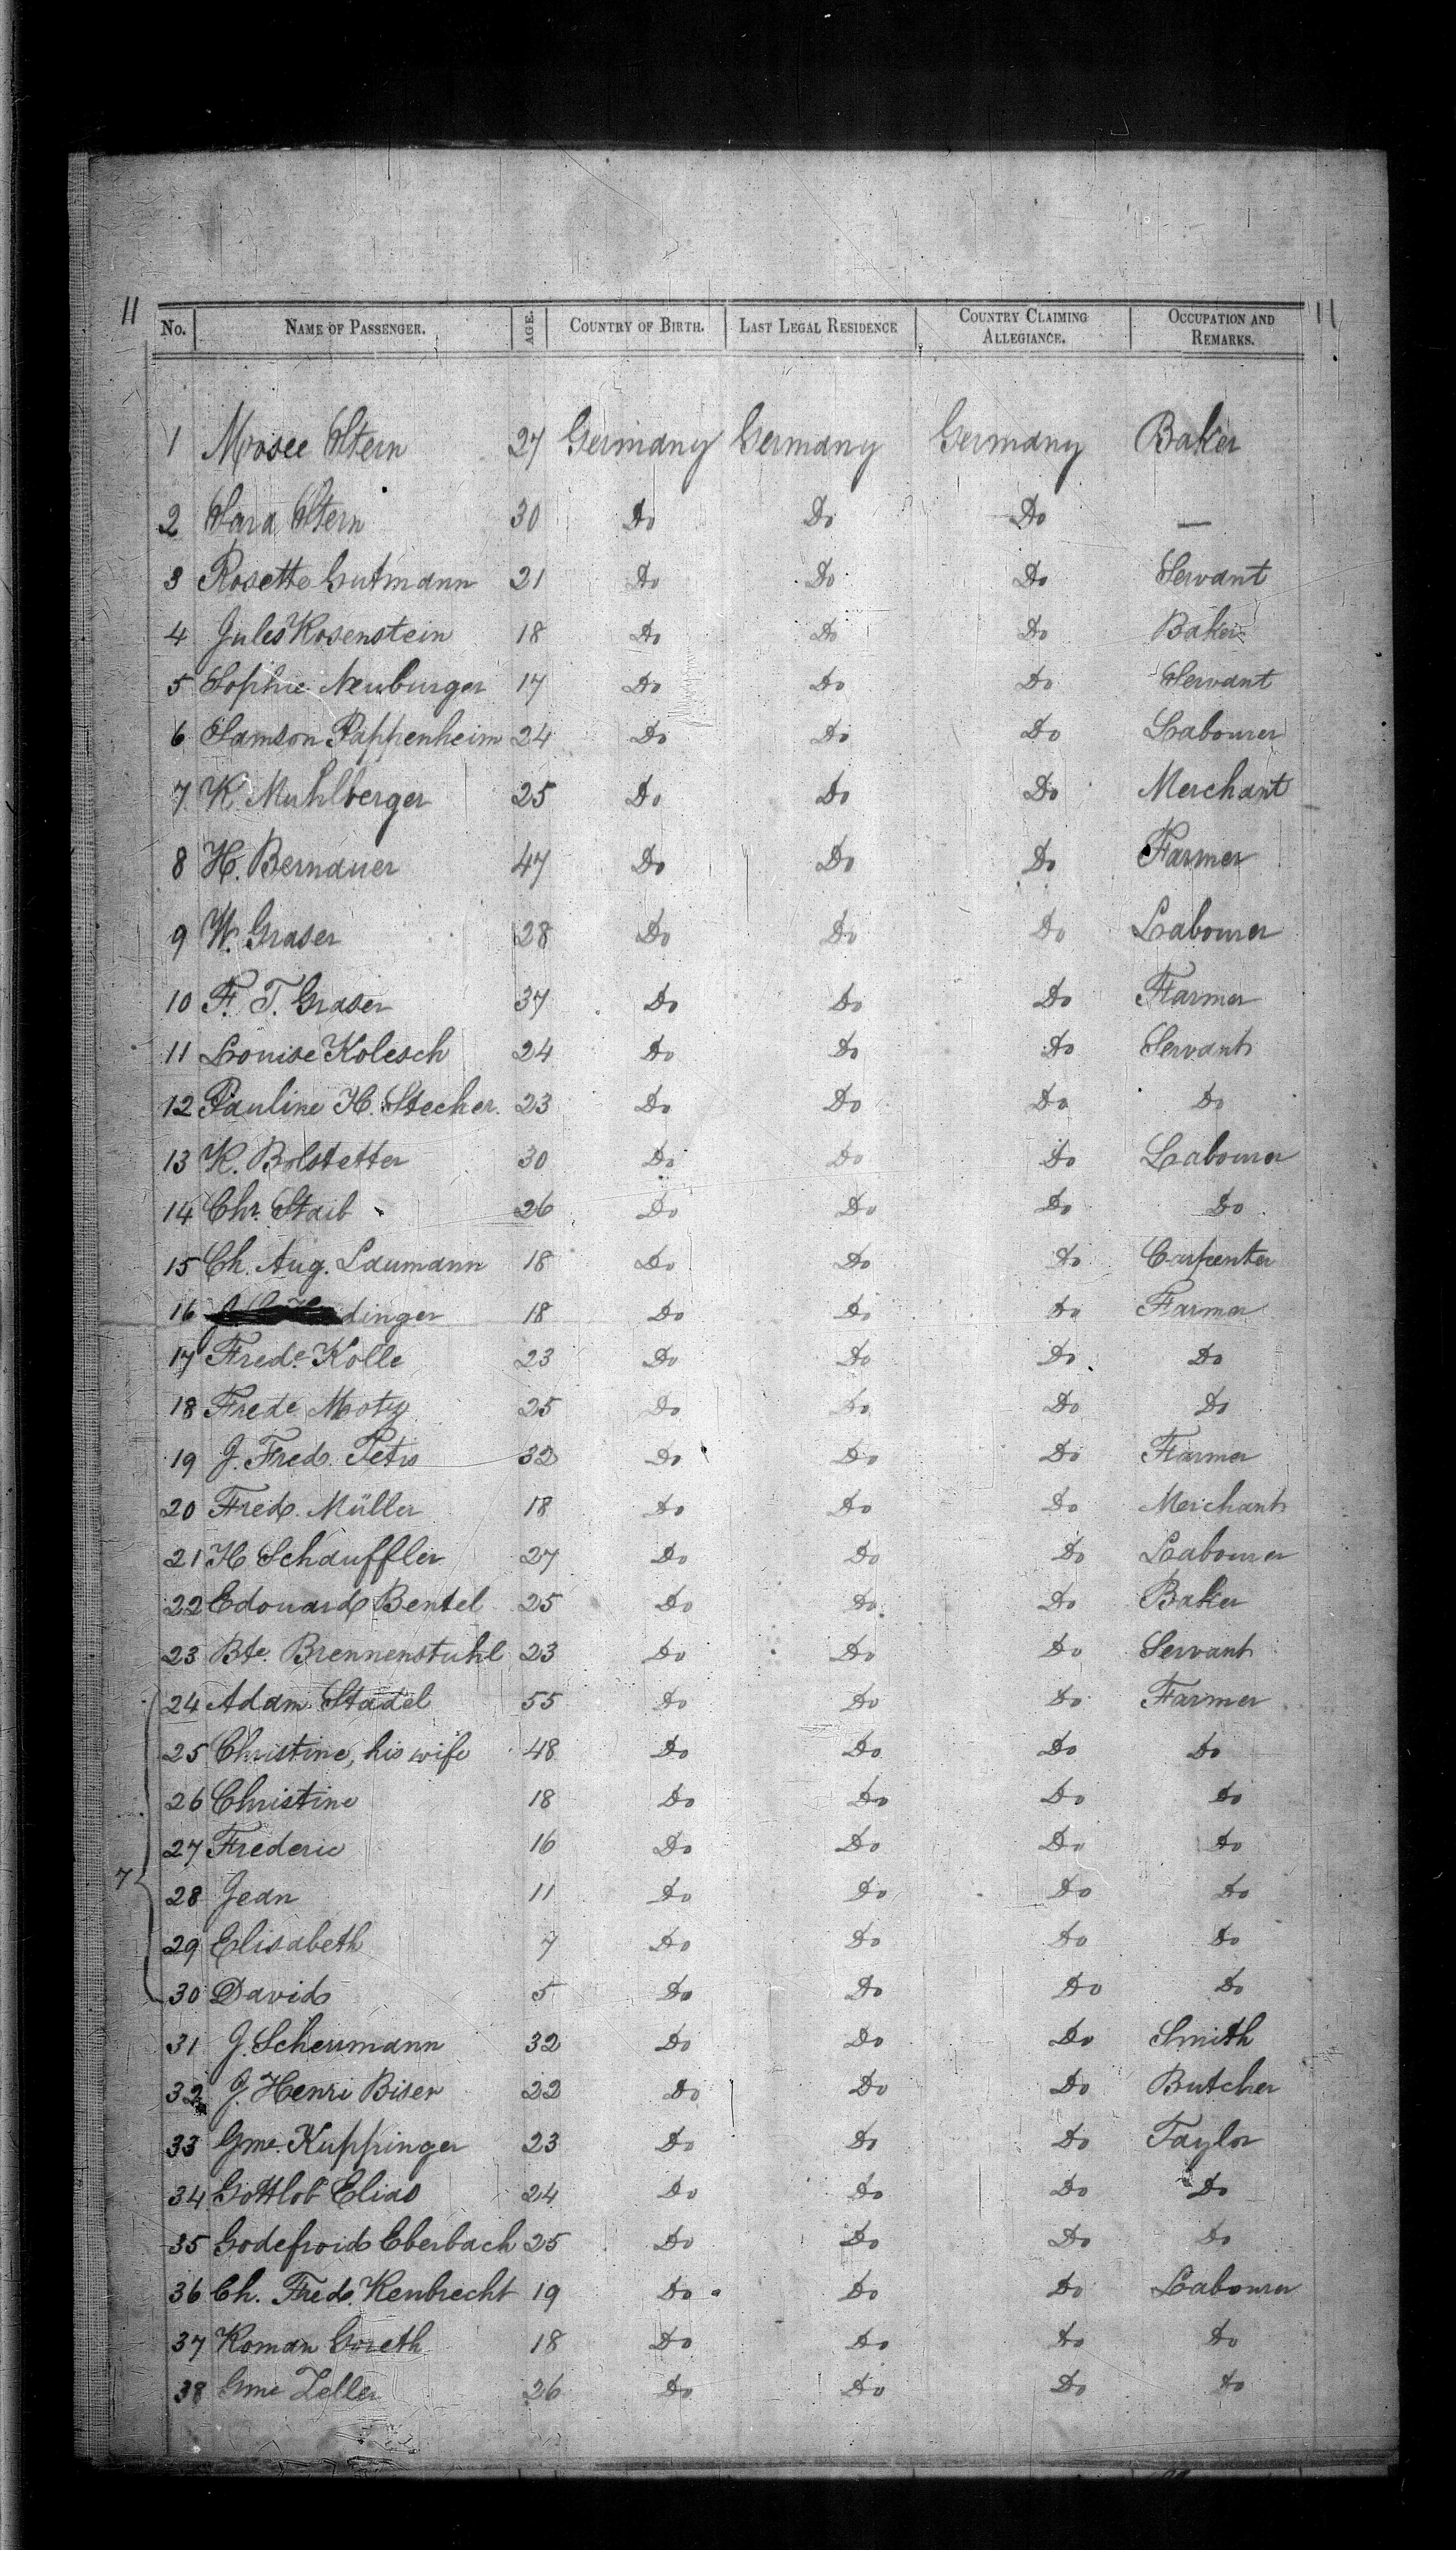 11 11
No. NAME OF PASSENGER. AGE. COUNTRY OF BIRTH. LAST LEGAL RESIDENCE COUNTRY CLAIMING ALLEGIANCE. OCCUPATION AND REMARKS.
1 Mosee Stern 27 Germany Germany Germany Baker
2 Sara Stern 30 Do Do Do —
3 Rosette Gutmann 21 Do Do Do Servant
4 Jules Rosenstein 18 Do Do Do Baker
5 Sophie Neuburger 17 Do Do Do Servant
6 Samson Pappenheim 24 Do Do Do Labourer
7 K. Muhlberger 25 Do Do Do Merchant
8 H. Bernauer 47 Do Do Do Farmer
9 W. Graser 28 Do Do Do Labourer
10 F. T. Graser 37 Do Do Do Farmer
11 Louise Kolesch 24 Do Do Do Servant
12 Pauline H. Stecher. 23 Do Do Do Do
13 K. Bolstetter 30 Do Do Do Labourer
14 Chr. Staib 26 Do Do Do Do
15 Ch. Aug. Laumann 18 Do Do Do Carpenter
16 dinger 18 Do Do Do Farmer
17 Frede. Kolle 23 Do Do Do Do
18 Frede Motz 25 Do Do Do Do
19 J. Fred. Petrs 32 Do Do Do Farmer
20 Fred. Müller 18 Do Do Do Merchant
21 H Schauffler 27 Do Do Do Labourer
22 Edouard Bentel 25 Do Do Do Baker
23 Bte. Brennenstuhl 23 Do Do Do Servant
24 Adam Stadel 55 Do Do Do Farmer
25 Christine, his wife 48 Do Do Do Do
26 Christine 18 Do Do Do Do
27 Frederic 16 Do Do Do Do
7
28 Jean 11 Do Do Do Do
29 Elisabeth 7 Do Do Do Do
30 David 5 Do Do Do Do
31 J. Scheumann 32 Do Do Do Smith
32 J. Henri Biser 22 Do Do Do Butcher
33 Gme. Kuppinger 23 Do Do Do Taylor
34 Gottlob Elias 24 Do Do Do Do
35 Godefroid Eberbach 25 Do Do Do Do
36 Ch. Fred. Kenbrecht 19 Do Do Do Labourer
37 Roman Goreth 18 Do Do Do Do
38 Gme Zeller 26 Do Do Do Do